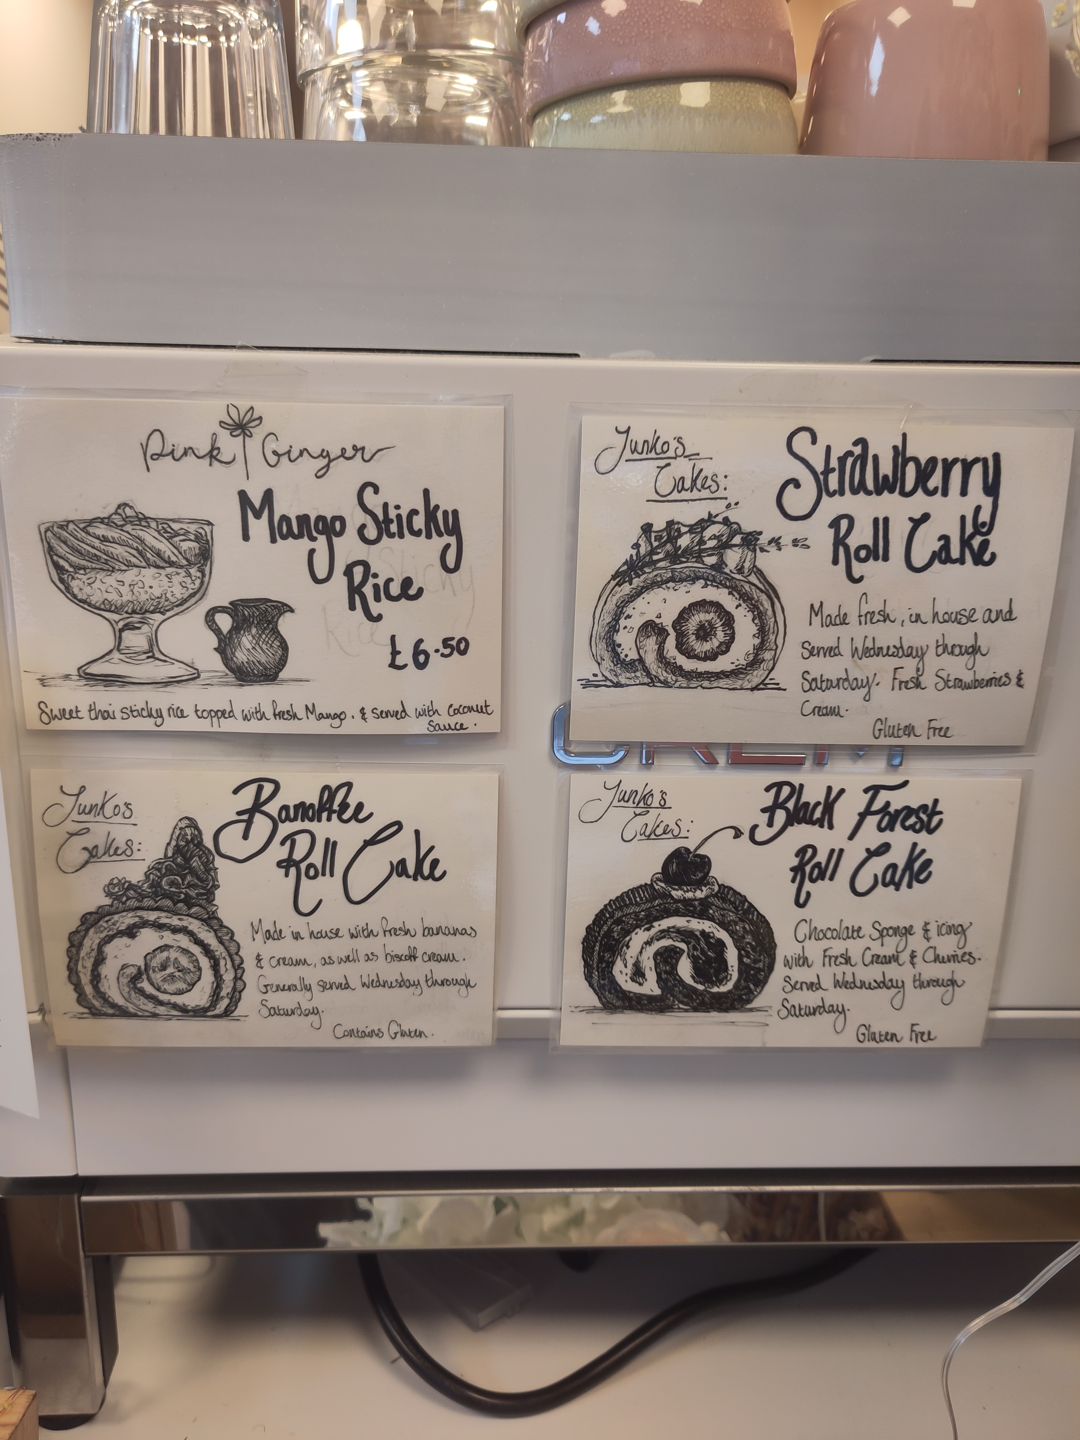 Pink Ginger
Mango Sticky
Rice
£6.50
Sweet thai sticky rice topped with fresh Mango. & served with coconut
Sauce.
Junko's
Cakes:
Strawberry
Roll Cake
Made fresh, in house and
Served Wednesday through
Saturday. Fresh Strawberries &
Cream.
Gluten Free
Junko's
Cakes:
Banoffee
Roll Cake
Made in house with fresh bananas
& cream, as well as biscoff cream.
Generally served Wednesday through
Saturday.
Contains Gluten.
Junko's
Cakes:
Black Forest
Roll Cake
Chocolate Sponge & icing
with Fresh Cream & Cherries.
Served Wednesday through
Saturday.
Gluten Free